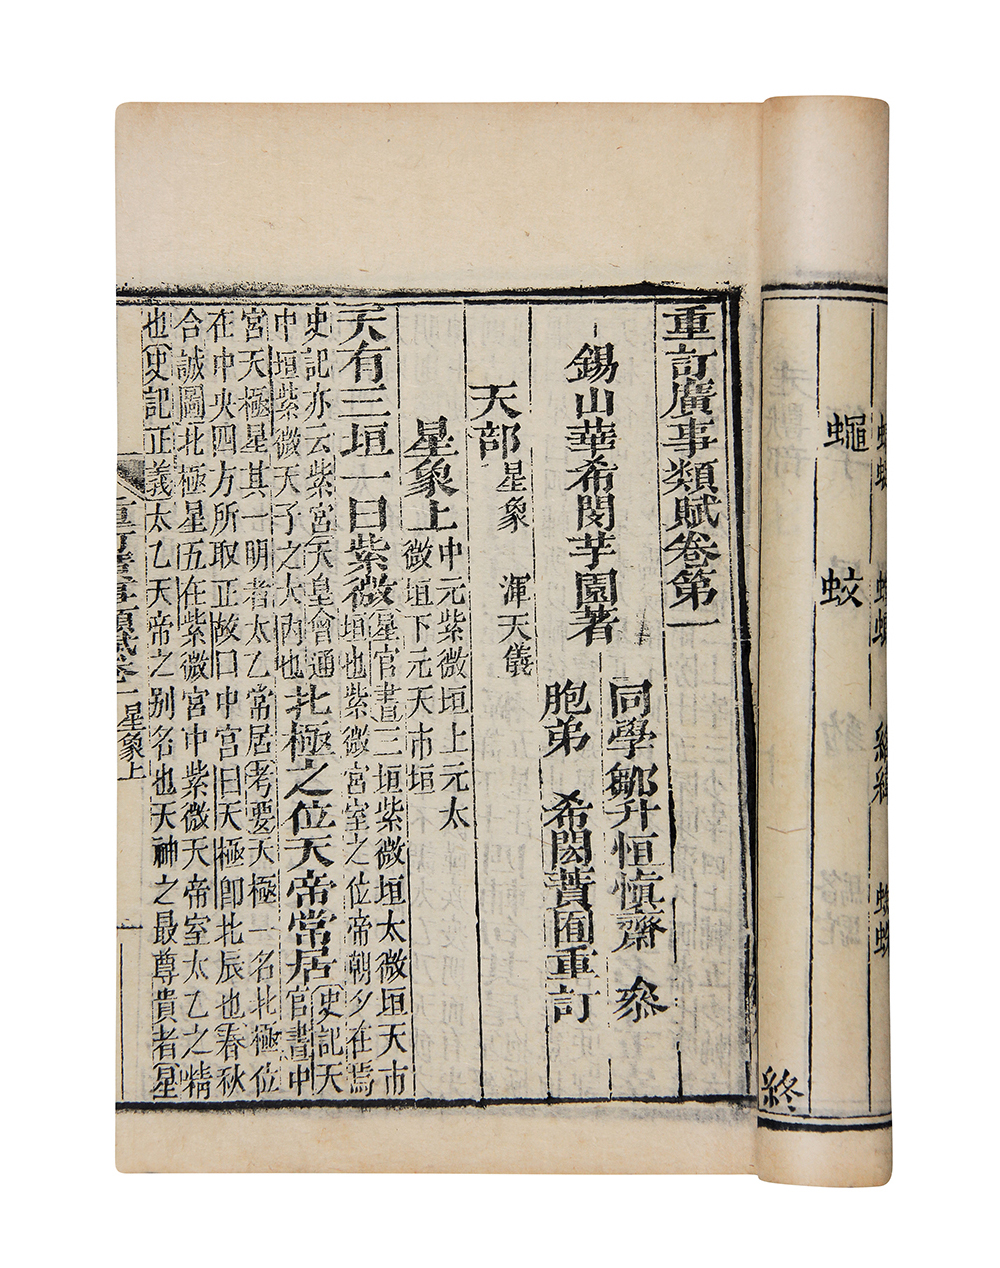 蠅 蛟
終
重訂廣事類賦卷第一
同學鄒升恒慎齋 叅
錫山華希閔芋園著
胞弟 希閎蕡囿重訂
天部 星象 渾天儀
星象上 中元紫微垣上元太
微垣下元天市垣
天有三垣一曰紫微 星官書三垣紫微垣太微垣天市
垣也紫微宮室之位帝朝夕在焉
史記亦云紫宮天皇會通
中垣紫微天子之大內也 北極之位天帝常居 史記天
官書中
宮天極星其一明者太乙常居考要天極一名北極位
在中央四方所取正故曰中宮曰天極卽北辰也春秋
合誠圖北極星五在紫微宮中紫微天帝室太乙之精
也史記正義太乙天帝之别名也天神之最尊貴者星
重訂廣事類賦卷一 星象上 一